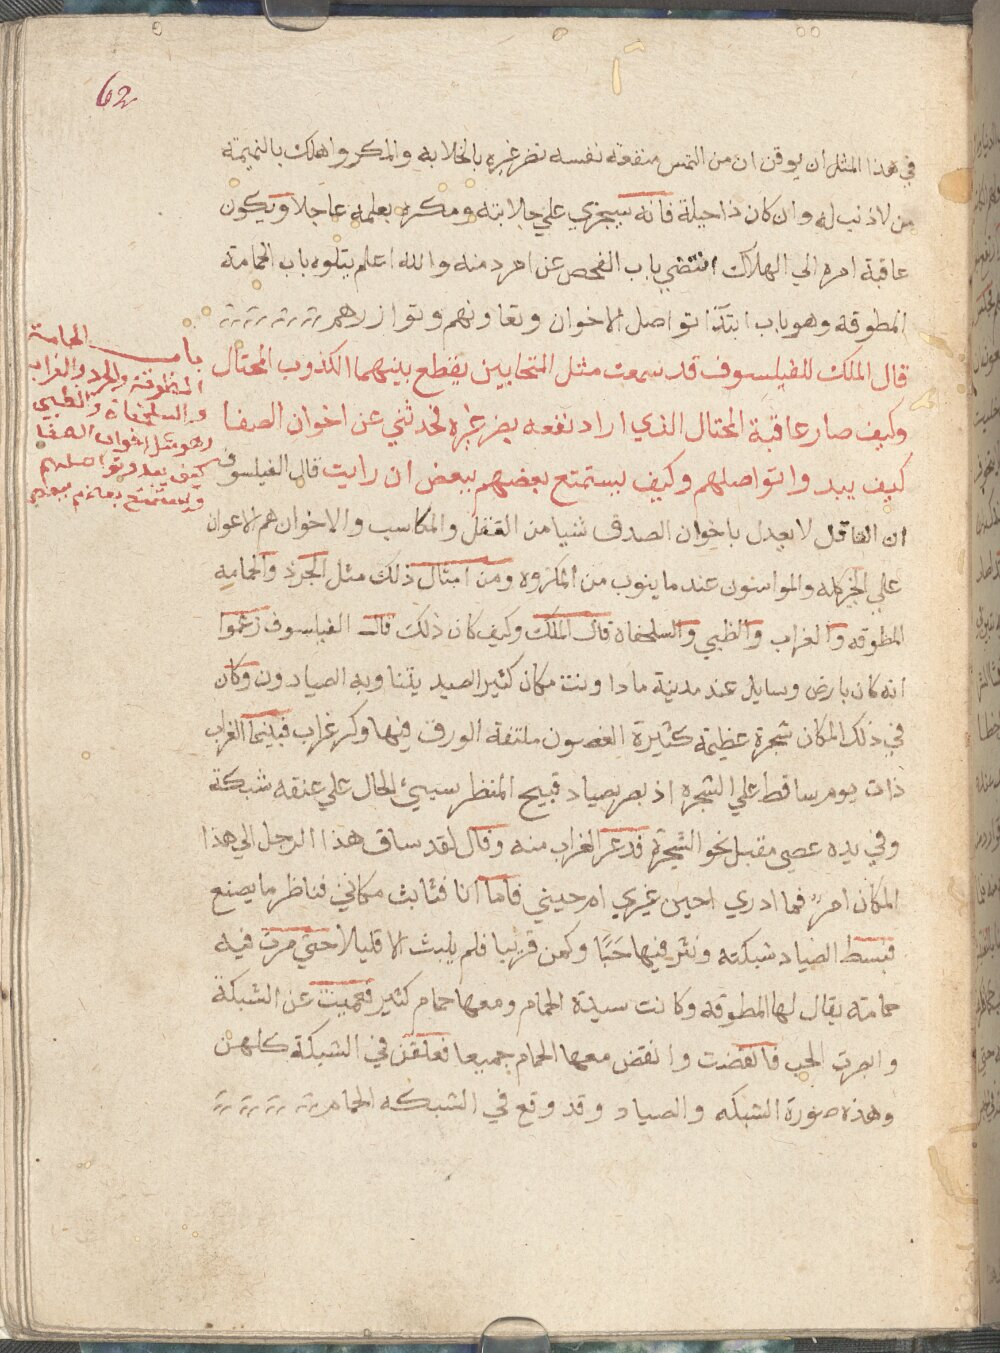 62
في هذا المثل ان يوقن ان من التمس منفعة نفسه بضر غيره بالخلابه والمكر واهلك بالنميمة
من لا ذنب له وان كان ذا حيلة فانه سيجزي علي خلابته ومكره بعلمه عاجلا ويكون
عاقبة امره الي الهلاك انقضي باب الفحص عن امر دمنه والله اعلم يتلوه باب الحمامة
المطوقه وهو باب ابتدآ تواصل الاخوان وتعاونهم وتوازرهم
قال الملك للفيلسوف قد سمعت مثل المتحابين يقطع بينهما الكذوب المحتال
وكيف صار عاقبة المحتال الذي اراد نفعه بضر غيره فحدثني عن اخوان الصفا
كيف يبدوا تواصلهم وكيف يستمتع بعضهم ببعض ان رايت قال الفيلسوف
باب الحمامة
المطوقة والجرد والغراب
والسلحفاة والظبي
وهو مثل اخوان الصفا
كيف يبدو تواصلهم
ويستمتع بعضهم ببعض
ان العاقل لا يعدل باخوان الصدق شيا من العقل والمكاسب والاخوان هم الاعوان
علي الخير كله والمواسون عند ما ينوب من المكروه ومن امثال ذلك مثل الجرذ والحمامه
المطوقه والغراب والظبي والسلحفاه قال الملك وكيف كان ذلك قال الفيلسوف زعموا
انه كان بارض وسايل عند مدينة مادا ونت مكان كثير الصيد يتناوبه الصيادون وكان
في ذلك المكان شجرة عظيمة كثيرة الغصون ملتفة الورق فيها وكر غراب فبينما الغراب
ذات يوم ساقط علي الشجره اذ بصر بصياد قبيح المنظر سيئ الحال علي عنقه شبكة
وفي يده عصي مقبل نحو الشجرة فدعر الغراب منه وقال لقد ساق هذا الرجل الي هذا
المكان امر فما ادري احين غيري ام حيني فاما انا فثابت مكاني فناظر ما يصنع
فبسط الصياد شبكته ونثر فيها حبا وكمن قريبا فلم يلبث الا قليلا حتي مرت فيه
حمامة يقال لها المطوقه وكانت سيدة الحمام ومعها حمام كثير فعميت عن الشبكة
وابصرت الحب فانقضت وانقض معها الحمام جميعا فعلقن في الشبكة كلهن
وهذه صورة الشبكه والصياد وقد وقع في الشبكه الحمام